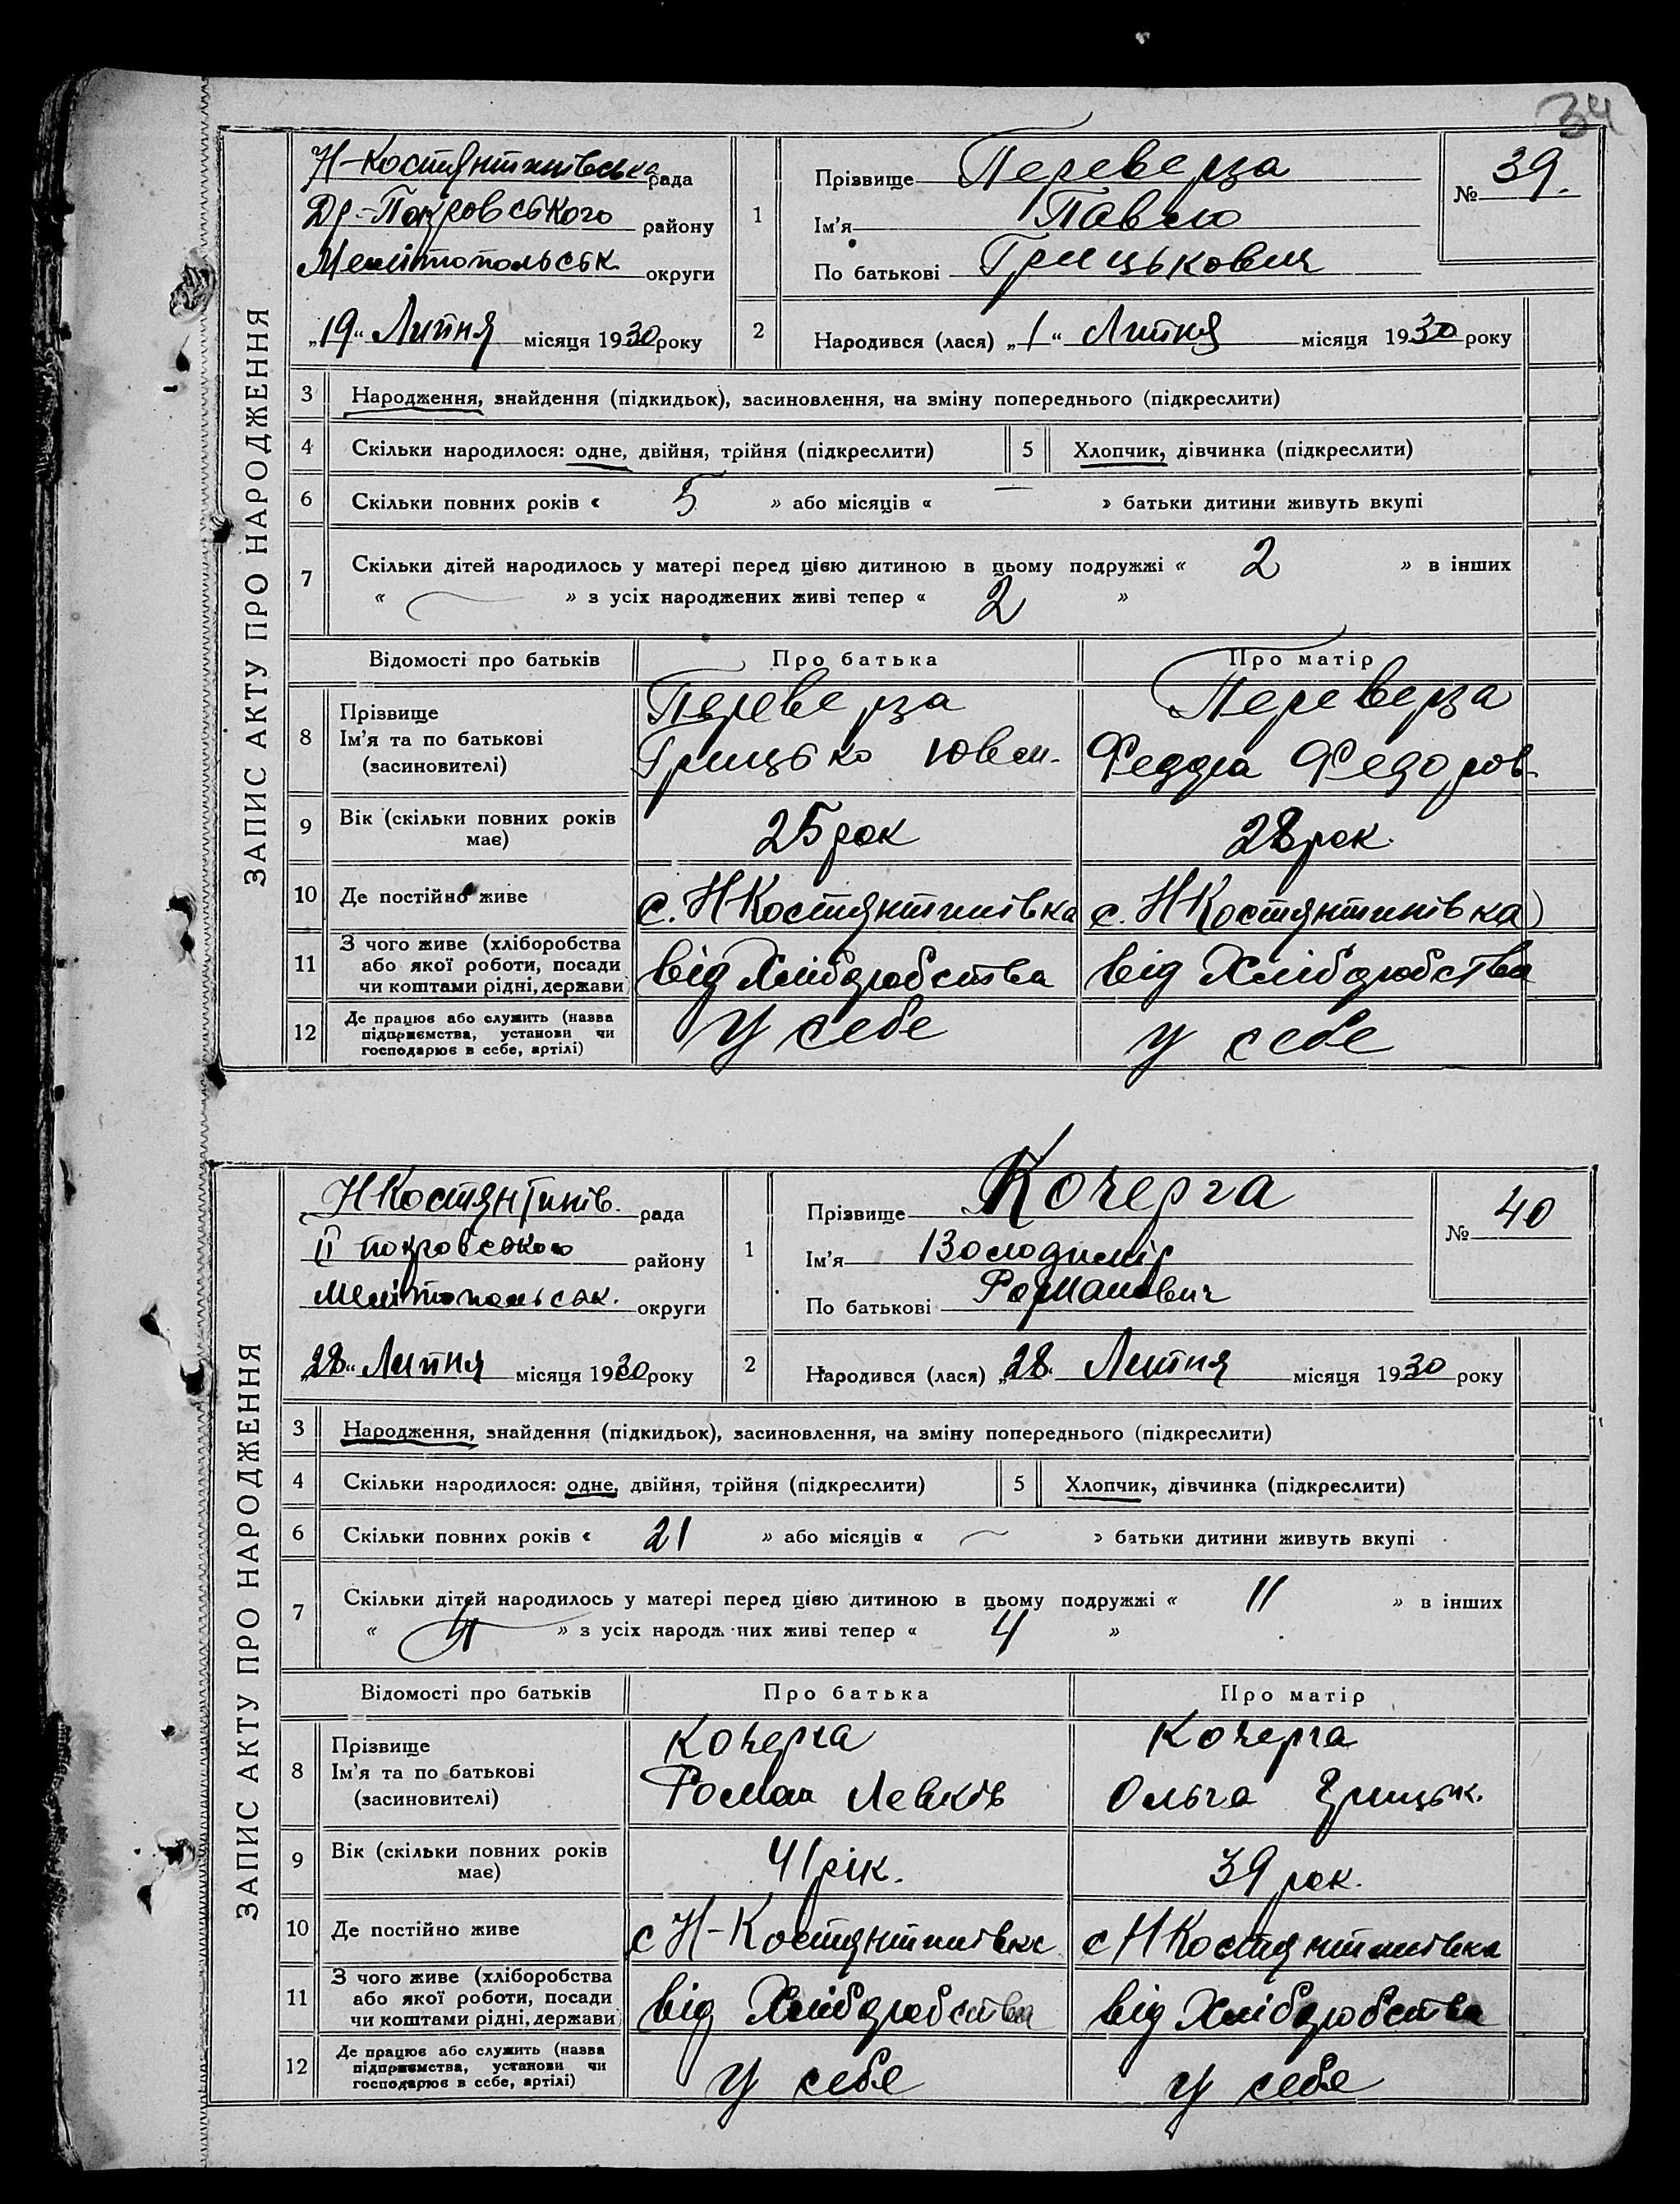 34
ЗАПИС АКТУ ПРО НАРОДЖЕННЯ
Н-Костянтинівська рада
Др.-Покровського району
Мелітопольськ. округи
„19“ Липня місяця 1930 року
1 Прізвище Переверза
Ім'я Павло
По батькові Грицькович
№ 39.
2 Народився (лася) „1“ Липня місяця 1930 року
3 Народження, знайдення (підкидьок), засиновлення, на зміну попереднього (підкреслити)
4 Скільки народилося: одне, двійня, трійня (підкреслити) 5 Хлопчик, дівчинка (підкреслити)
6 Скільки повних років « 5 » або місяців « — » батьки дитини живуть вкупі
7 Скільки дітей народилось у матері перед цією дитиною в цьому подружжі « 2 » в інших
« — » з усіх народжених живі тепер « 2 »
Відомості про батьків Про батька Про матір
8 Прізвище Переверза Переверза
Ім'я та по батькові Грицько Федора Федоров.
(засиновителі)
9 Вік (скільки повних років 25 рок 28 рок.
має)
10 Де постійно живе с. НКостянтинівка с. НКостянтинівка
11 З чого живе (хліборобства
або якої роботи, посади від Хліборобства від Хліборобства
чи коштами рідні, держави
12 Де працює або служить (назва
підприємства, установи чи У себе у себе
господарює в себе, артілі)
ЗАПИС АКТУ ПРО НАРОДЖЕННЯ
НКостянтинів. рада
покровського району
Мелітопольськ. округи
„28“ Липня місяця 1930 року
1 Прізвище Кочерга
Ім'я Володимір
По батькові Романович
№ 40
2 Народився (лася) „28“ Липня місяця 1930 року
3 Народження, знайдення (підкидьок), засиновлення, на зміну попереднього (підкреслити)
4 Скільки народилося: одне, двійня, трійня (підкреслити) 5 Хлопчик, дівчинка (підкреслити)
6 Скільки повних років « 21 » або місяців « — » батьки дитини живуть вкупі
7 Скільки дітей народилось у матері перед цією дитиною в цьому подружжі « 11 » в інших
« » з усіх народж них живі тепер « 4 »
Відомості про батьків Про батька Про матір
8 Прізвище Кочерга Кочерга
Ім'я та по батькові Роман Левків Ольга Грицьк.
(засиновителі)
9 Вік (скільки повних років 41 рік. 39 рок.
має)
10 Де постійно живе с Н-Костянтинівка с НКостянтинівка
11 З чого живе (хліборобства
або якої роботи, посади від Хліборобства від Хліборобства
чи коштами рідні, держави
12 Де працює або служить (назва
підприємства, установи чи у себе у себе
господарює в себе, артілі)